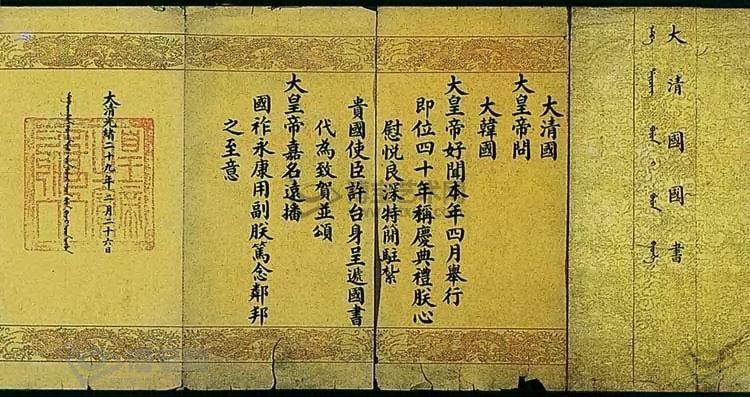 大清國國書
大清國
大皇帝問
大韓國
大皇帝好聞本年四月舉行
即位四十年稱慶典禮朕心
慰悦良深特簡駐紮
貴國使臣許台身呈遞國書
代為致賀並頌
大皇帝嘉名遠播
國祚永康用副朕篤念鄰邦
之至意
大清光緒二十九年二月二十六日